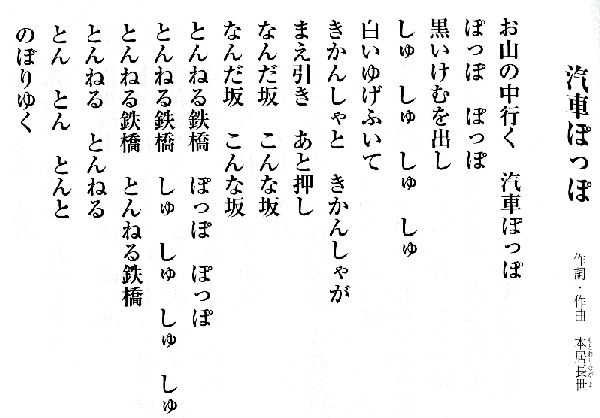 汽車ぽっぽ
作詞・作曲 本居長世
お山の中行く 汽車ぽっぽ
ぽっぽ ぽっぽ
黒いけむを出し
しゅ しゅ しゅ しゅ
白いゆげふいて
きかんしゃと きかんしゃが
まえ引き あと押し
なんだ坂 こんな坂
なんだ坂 こんな坂
とんねる鉄橋 ぽっぽ ぽっぽ
とんねる鉄橋 しゅ しゅ しゅ しゅ
とんねる鉄橋 とんねる鉄橋
とんねる とんねる
とん とん とんと
のぼりゆく